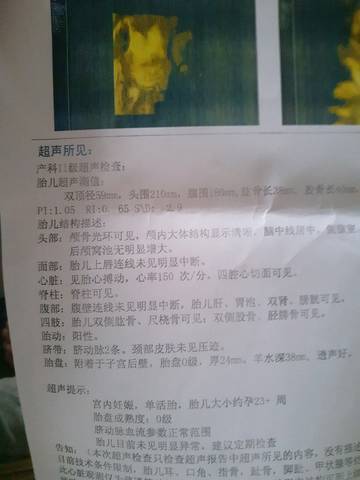 超声所见:
产科II级超声检查:
胎儿超声测值:
双顶径59mm, 头围210mm, 腹围186mm, 肱骨长38mm, 股骨长40mm
PI:1.05 RI:0.65 S\D: 2.9
胎儿结构描述:
头部: 颅骨光环可见, 颅内大体结构显示清晰, 脑中线居中,
后颅窝池无明显增大。
面部: 胎儿上唇连线未见明显中断。
心脏: 见胎心搏动, 心率150 次/分, 四腔心切面可见。
脊柱: 脊柱可见。
腹部: 腹壁连续未见明显中断, 胎儿肝、胃泡、双肾、膀胱可见。
四肢: 胎儿双侧肱骨、尺桡骨可见; 双侧股骨、胫腓骨可见。
胎动: 阳性。
脐带: 脐动脉2条。颈部皮肤未见压迹。
胎盘: 附着于子宫后壁, 胎盘0级, 厚24mm。羊水深38mm, 透声好。
超声提示:
宫内妊娠, 单活胎, 胎儿大小约孕23+ 周
胎盘成熟度: 0级
脐动脉血流参数正常范围
胎儿目前未见明显异常, 建议定期检查
告知: (本次超声检查只检查超声报告中超声所见的内容, 没有描述
目前技术条件限制, 胎儿耳、口角、指骨、趾骨、脚趾、甲状腺等